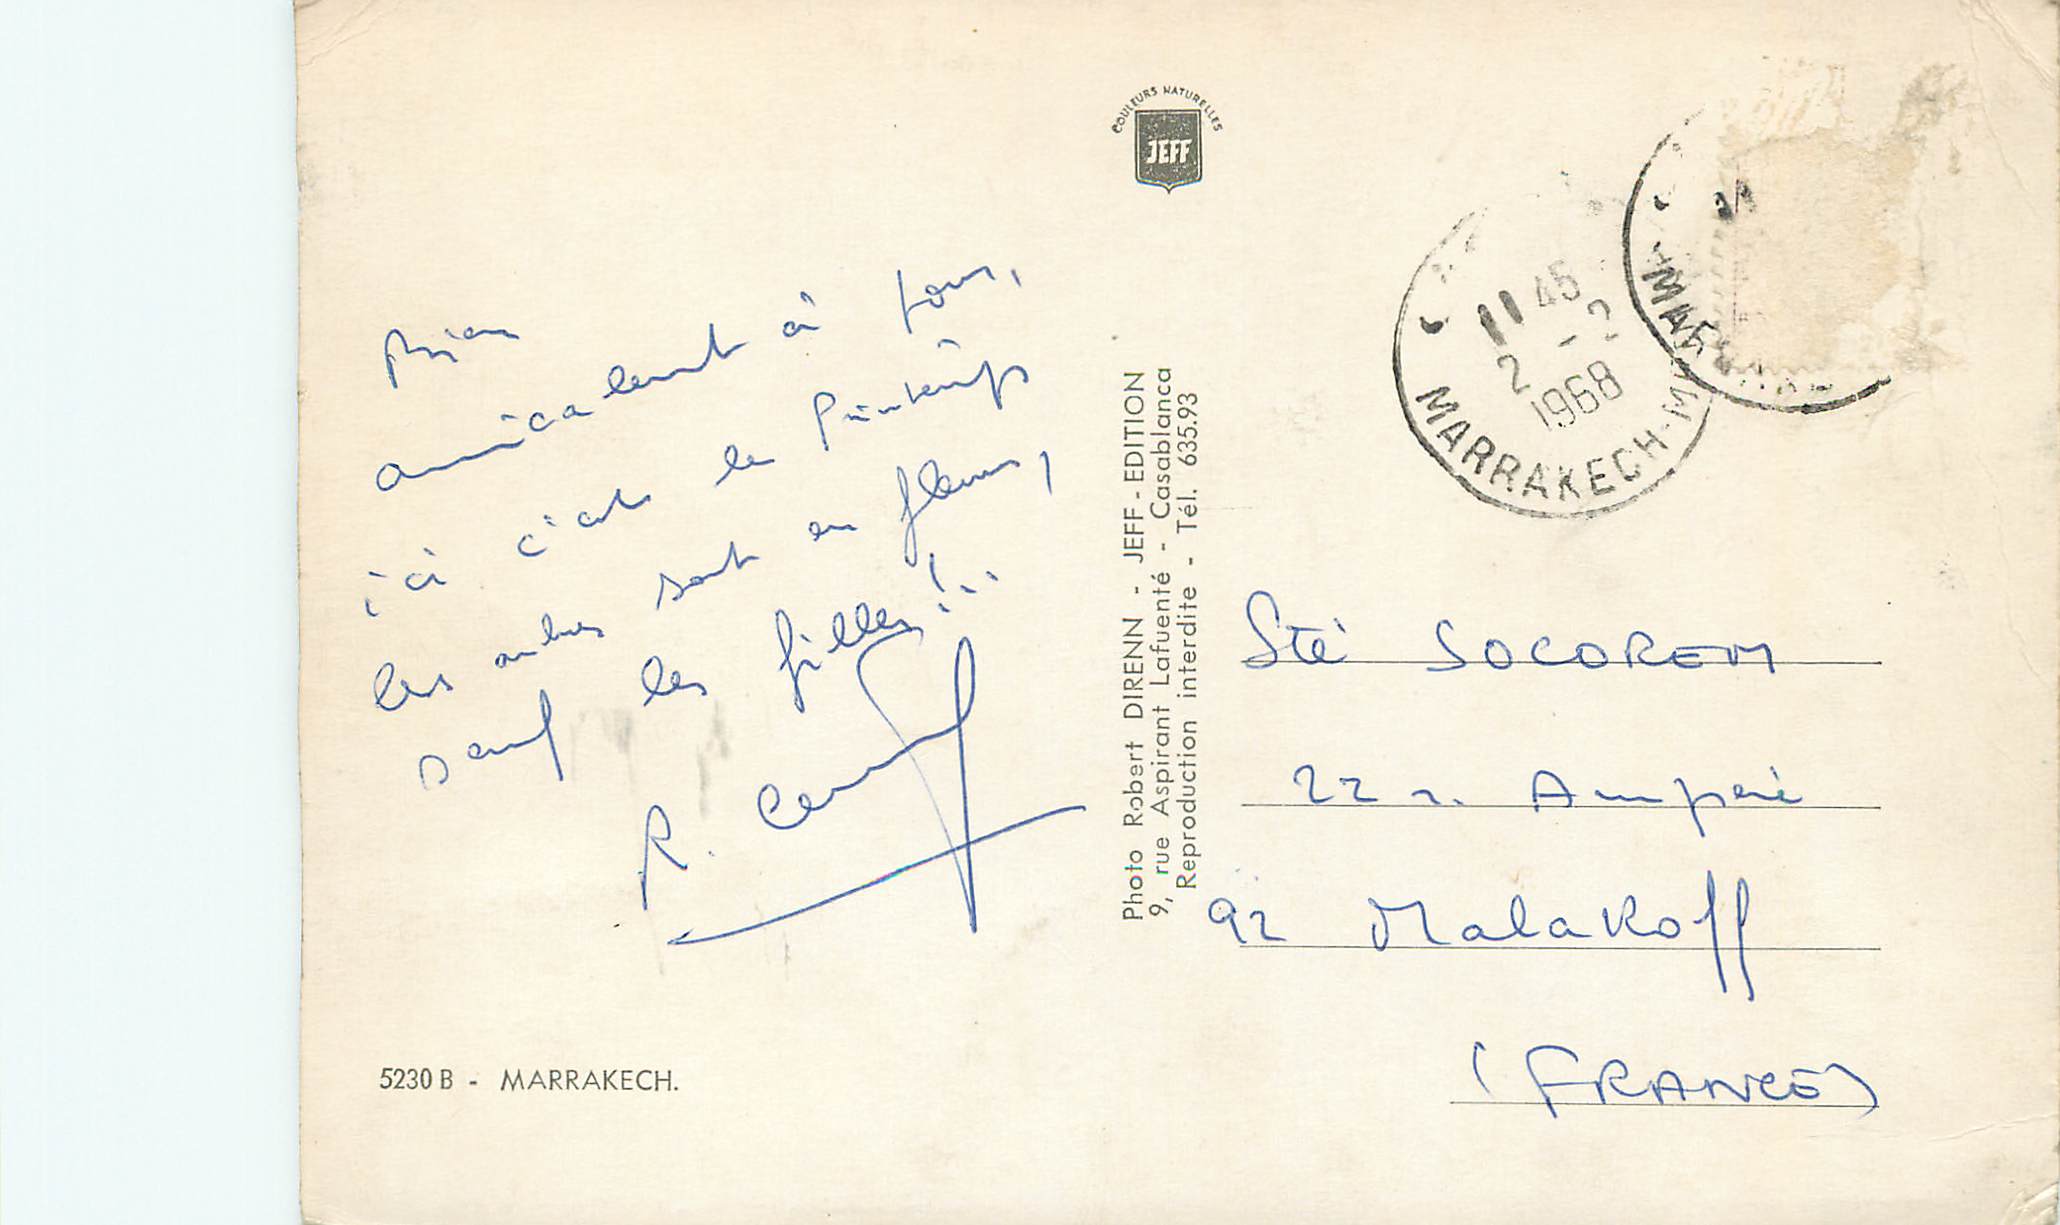 COULEURS NATURELLES
JEFF
Bien
amicalement à tous,
ici c'est le Printemps
les arbres sont en fleurs,
sauf les filles!..
R.
5230 B - MARRAKECH.
Photo Robert DIRENN - JEFF-EDITION
9, rue Aspirant Lafuenté - Casablanca
Reproduction interdite - Tél. 635.93
11 45
2 - 2
1968
MARRAKECH-M
MAR
Sté SOCOREM
22 r. Ampère
92 Malakoff
(FRANCE)